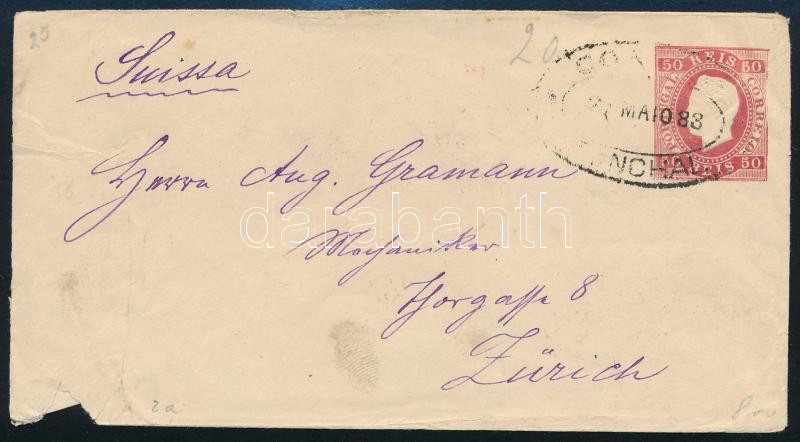 25
20
Suissa
50 REIS 50
PORTUGAL
CORREIO
50 REIS 50
MAIO 83
NCHAL
Herrn Aug. Gramann
darabanth
Mechaniker
Thorgasse 8
Zürich
2a